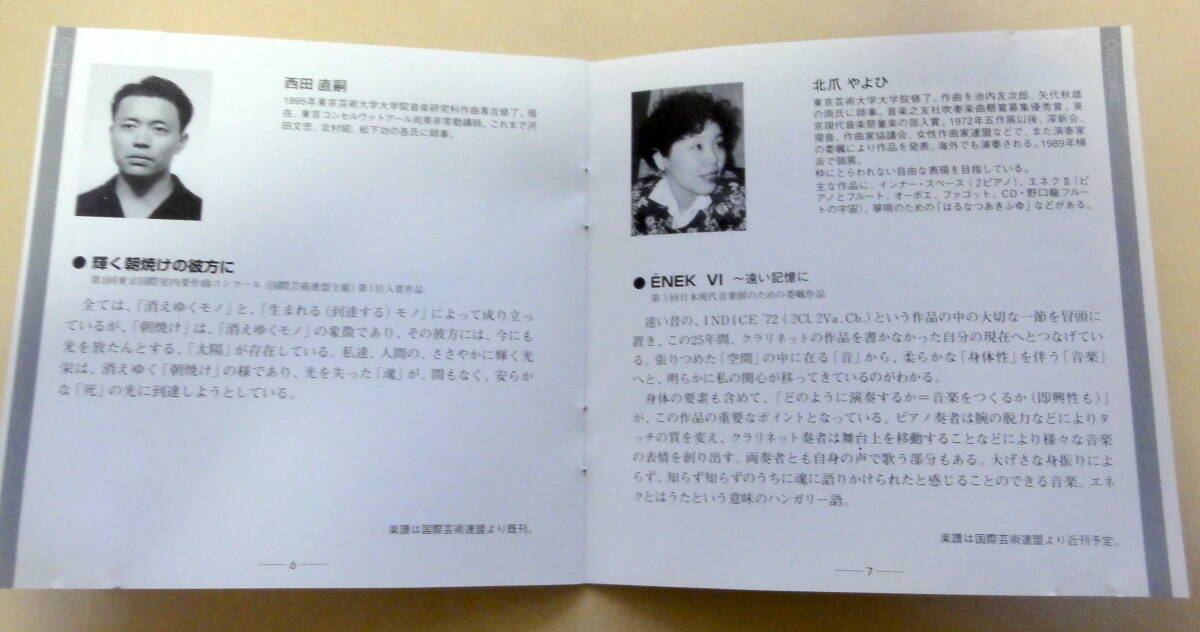 Composer
西田 直嗣
1995年東京芸術大学大学院音楽研究科作曲専攻修了。現
在、東京コンセルヴァトアール尚美非常勤講師。これまで河
田文忠、北村昭、松下功の各氏に師事。
● 輝く朝焼けの彼方に
第2回東京国際室内楽作曲コンクール《国際芸術連盟主催》第1位入賞作品
全ては、「消えゆくモノ」と、「生まれる(到達する)モノ」によって成り立っ
ているが、「朝焼け」は、「消えゆくモノ」の象徴であり、その彼方には、今にも
光を放たんとする、「太陽」が存在している。私達、人間の、ささやかに輝く光
栄は、消えゆく「朝焼け」の様であり、光を失った「魂」が、間もなく、安らか
な「死」の光に到達しようとしている。
楽譜は国際芸術連盟より既刊。
6
Composer
北爪 やよひ
東京芸術大学大学院修了。作曲を池内友次郎、矢代秋雄
の両氏に師事。音楽之友社吹奏楽曲懸賞募集優秀賞、東
京現代音楽祭童楽の部入賞。1972年五作展以後、深新会、
現音、作曲家協議会、女性作曲家連盟などで、また演奏家
の委嘱により作品を発表。海外でも演奏される。1989年横
浜で個展。
枠にとらわれない自由な表現を目指している。
主な作品に、インナー・スペース(2ピアノ)、エネクⅡ(ピ
アノとフルート、オーボエ、ファゴット、CD・野口龍フルー
トの宇宙)、箏唄のための「はるなつあきふゆ」などがある。
● ÉNEK VI ～遠い記憶に
第3回日本現代音楽展のための委嘱作品
遠い昔の、INDICE '72 (2Cl.2Va.Cb.)という作品の中の大切な一節を冒頭に
置き、この25年間、クラリネットの作品を書かなかった自分の現在へとつなげてい
る。張りつめた「空間」の中に在る「音」から、柔らかな「身体性」を伴う「音楽」
へと、明らかに私の関心が移ってきているのがわかる。
身体の要素も含めて、「どのように演奏するか＝音楽をつくるか(即興性も)」
が、この作品の重要なポイントとなっている。ピアノ奏者は腕の脱力などによりタ
ッチの質を変え、クラリネット奏者は舞台上を移動することなどにより様々な音楽
の表情を創り出す。両奏者とも自身の声で歌う部分もある。大げさな身振りによ
らず、知らず知らずのうちに魂に語りかけられたと感じることのできる音楽。エネ
クとはうたという意味のハンガリー語。
楽譜は国際芸術連盟より近刊予定。
7